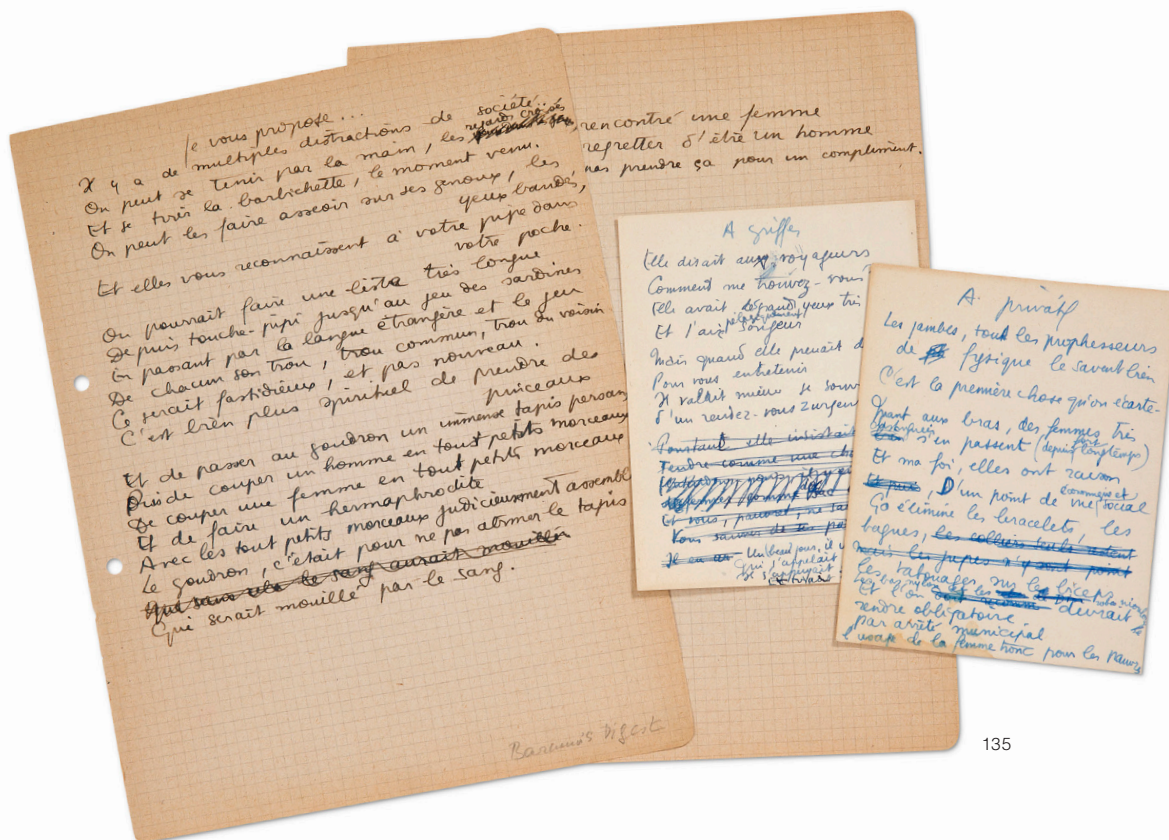 Je vous propose...
Il y a de multiples distractions de société..
On peut se tenir par la main, les regards croisés
Et se tenir la barbichette, le moment venu.
On peut les faire asseoir sur ses genoux, les
yeux bandés,
Et elles vous reconnaissent à votre pipe dans
votre poche.
On pourrait faire une liste très longue
Depuis touche-pipi jusqu'au jeu des sardines
En passant par la langue étrangère et le jeu
De chacun son trou, trou commun, trou du voisin
Ce serait fastidieux, et pas nouveau.
C'est bien plus spirituel de prendre des
pinceaux
Et de passer au goudron un immense tapis persan
Puis de couper un homme en tout petits morceaux
De couper une femme en tout petits morceaux
Et de faire un hermaphrodite
Avec les tout petits morceaux judicieusement assemblés
Le goudron, c'était pour ne pas abîmer le tapis
Que sans cela le sang aurait mouillé
Qui serait mouillé par le sang.
Barnum's Digest
rencontré une femme
regretter d'être un homme
pas prendre ça pour un compliment.
A griffes
Elle disait aux voyageurs
Comment me trouvez-vous
Elle avait de grands yeux très
Et l'air songeur
Mais quand elle prenait
Pour vous entretenir
Il valait mieux se souv
d'un rendez-vous zurgent
Pourtant elle insistait
Tendre comme une
Et vous, pauvret, ne
Vous
Il en
Un beau jour, il
Qui l'appelait
A privatif
Les jambes, tout les prophesseurs
de fysique le savent bien
C'est la première chose qu'on écarte-
Quant aux bras, des femmes très
s'en passent (depuis longtemps)
Et ma foi, elles ont raison
Et puis, D'un point de vue économique et social
Ça élimine les bracelets, les
bagues, les colliers
mais les jupes n'y
Les tatouages sur les biceps
Et l'on devrait
rendre obligatoire
par arrêté municipal
l'usage de la femme tronc pour les pauvres
135